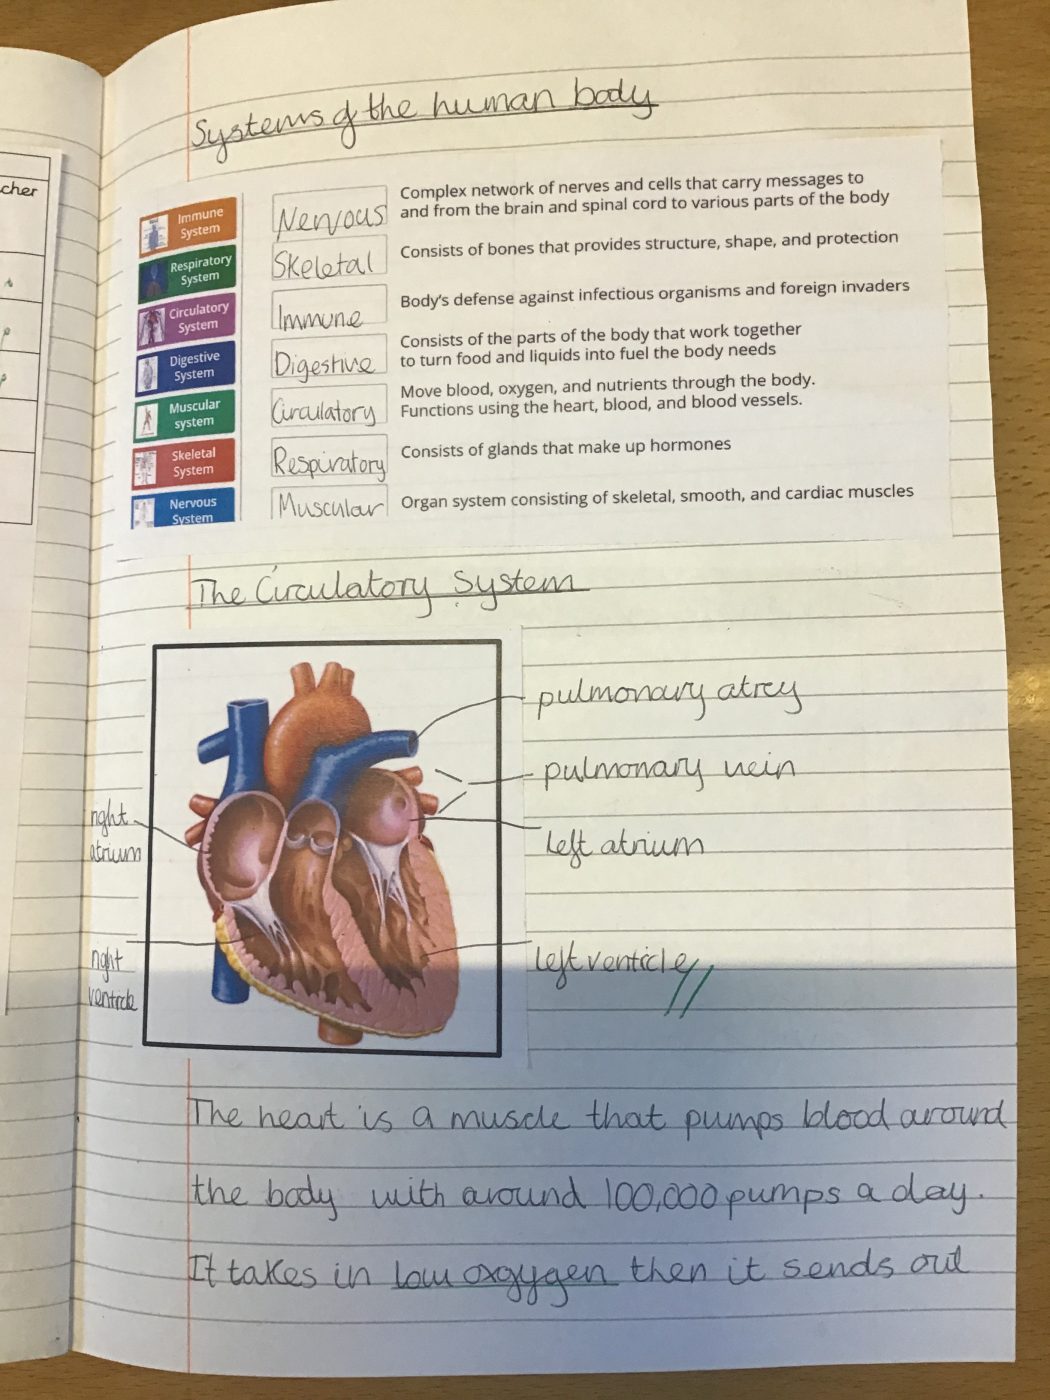 cher
Systems of the human body
Immune
System
Respiratory
System
Circulatory
System
Digestive
System
Muscular
system
Skeletal
System
Nervous
System
Nervous
Complex network of nerves and cells that carry messages to
and from the brain and spinal cord to various parts of the body
Skeletal
Consists of bones that provides structure, shape, and protection
Immune
Body's defense against infectious organisms and foreign invaders
Digestive
Consists of the parts of the body that work together
to turn food and liquids into fuel the body needs
Circulatory
Move blood, oxygen, and nutrients through the body.
Functions using the heart, blood, and blood vessels.
Respiratory
Consists of glands that make up hormones
Muscular
Organ system consisting of skeletal, smooth, and cardiac muscles
The Circulatory System
pulmonary atrey
pulmonary vein
left atrium
left ventricle
right
atrium
right
ventricle
The heart is a muscle that pumps blood around
the body with around 100,000 pumps a day.
It takes in low oxgygen then it sends out